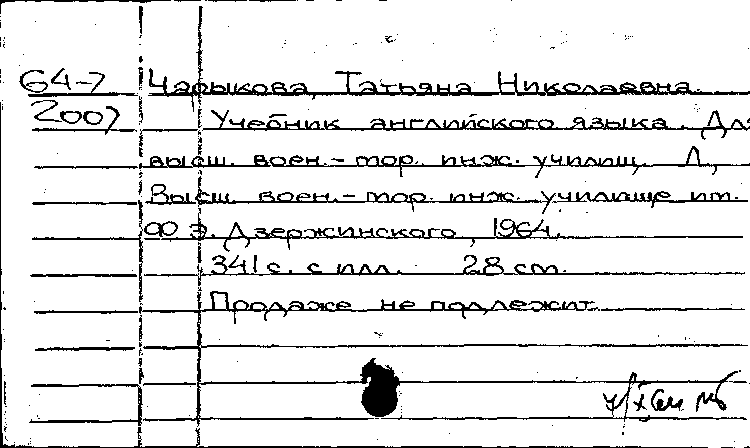 64-7 Чарыкова, Татьяна Николаевна.
2007 Учебник английского языка. Для
высш. воен.-мор. инж. училищ. Л.,
Высш. воен.-мор. инж. училище им.
Ф. Э. Дзержинского, 1964.
341 с. с илл. 28 см.
Продаже не подлежит